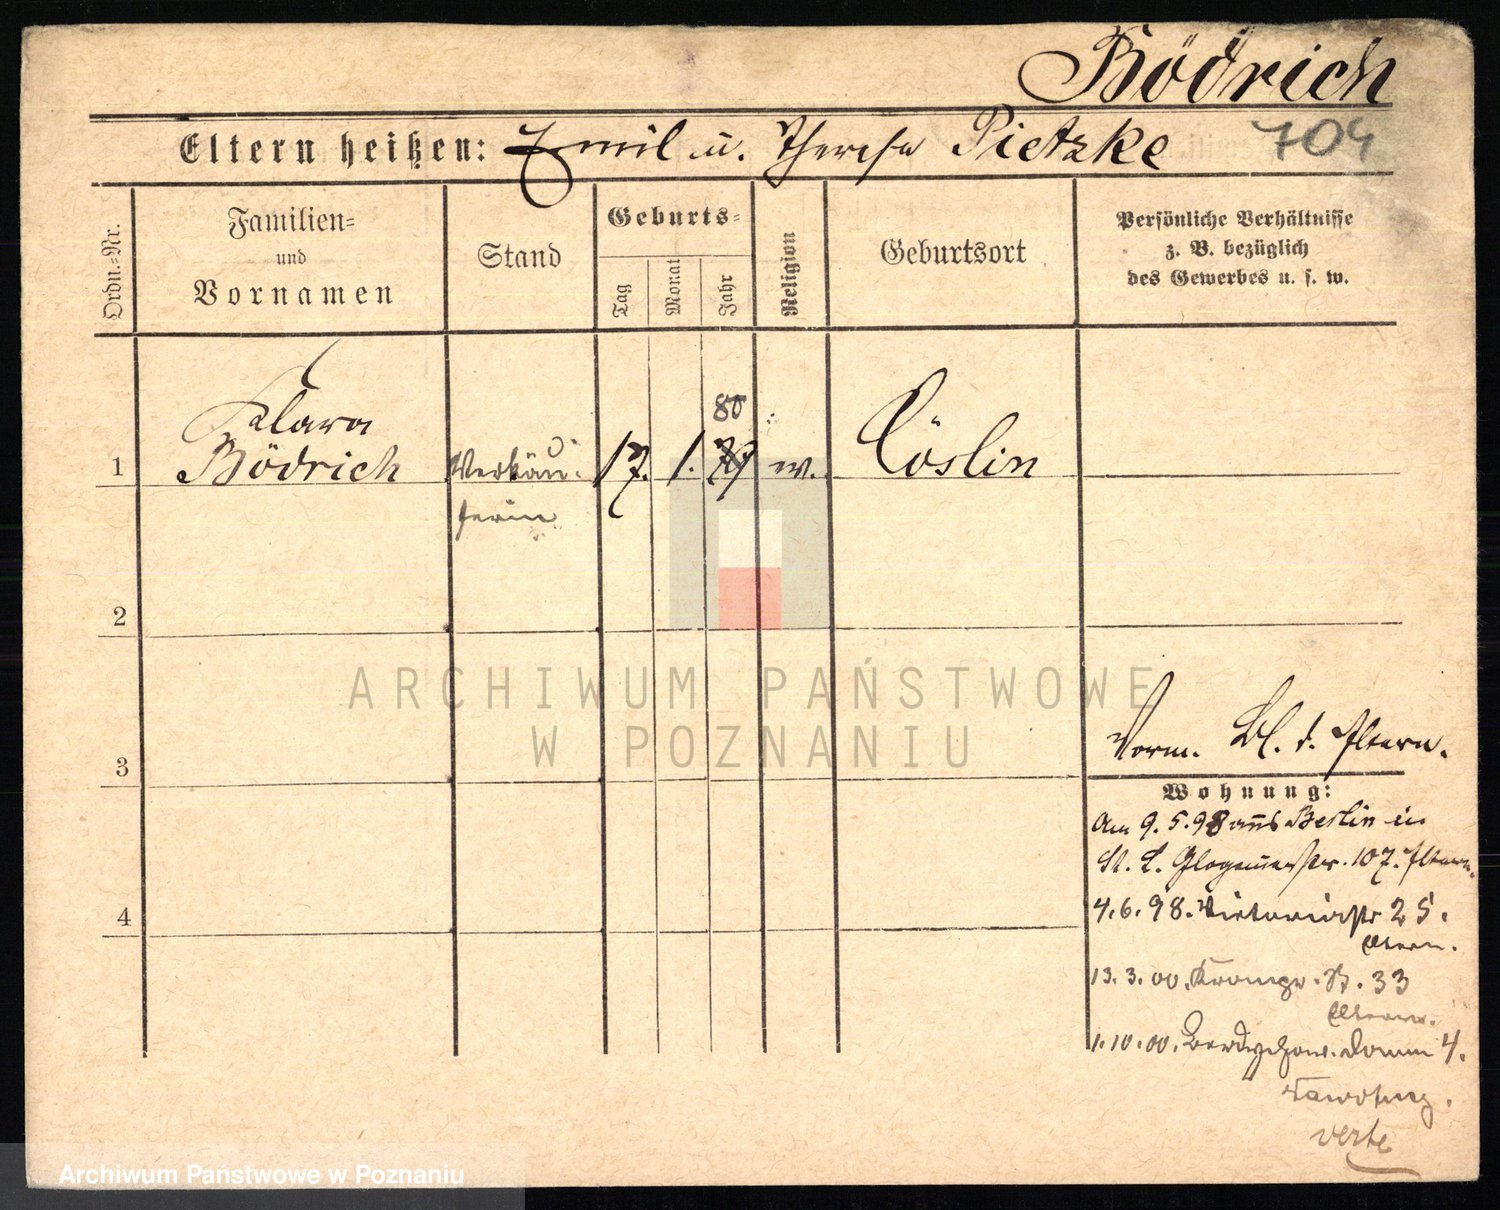 Bödrich
Eltern heißen: Emil u. Therese Pietzke
704
Ordn.-Nr.
Familien-
und
Vornamen
Stand
Geburts-
Tag
Monat
Jahr
Religion
Geburtsort
Persönliche Verhältnisse
z. B. bezüglich
des Gewerbes u. s. w.
80
Klara
1 Bödrich Verkäu- 17. 1. 79 w. Cöslin
ferin
2
ARCHIWUM PAŃSTWOWE
W POZNANIU
3
Vorm. Bl. d. Eltern.
Wohnung:
Am 9.5.98 aus Berlin in
St. L. Glogauerstr. 107. Eltern.
4
4.6.98. Victoriastr 25.
Eltern.
13.3.00. Kronpr. St. 33
Eltern.
1.10.00. Berdychow. Damm 4.
verte
Archiwum Państwowe w Poznaniu